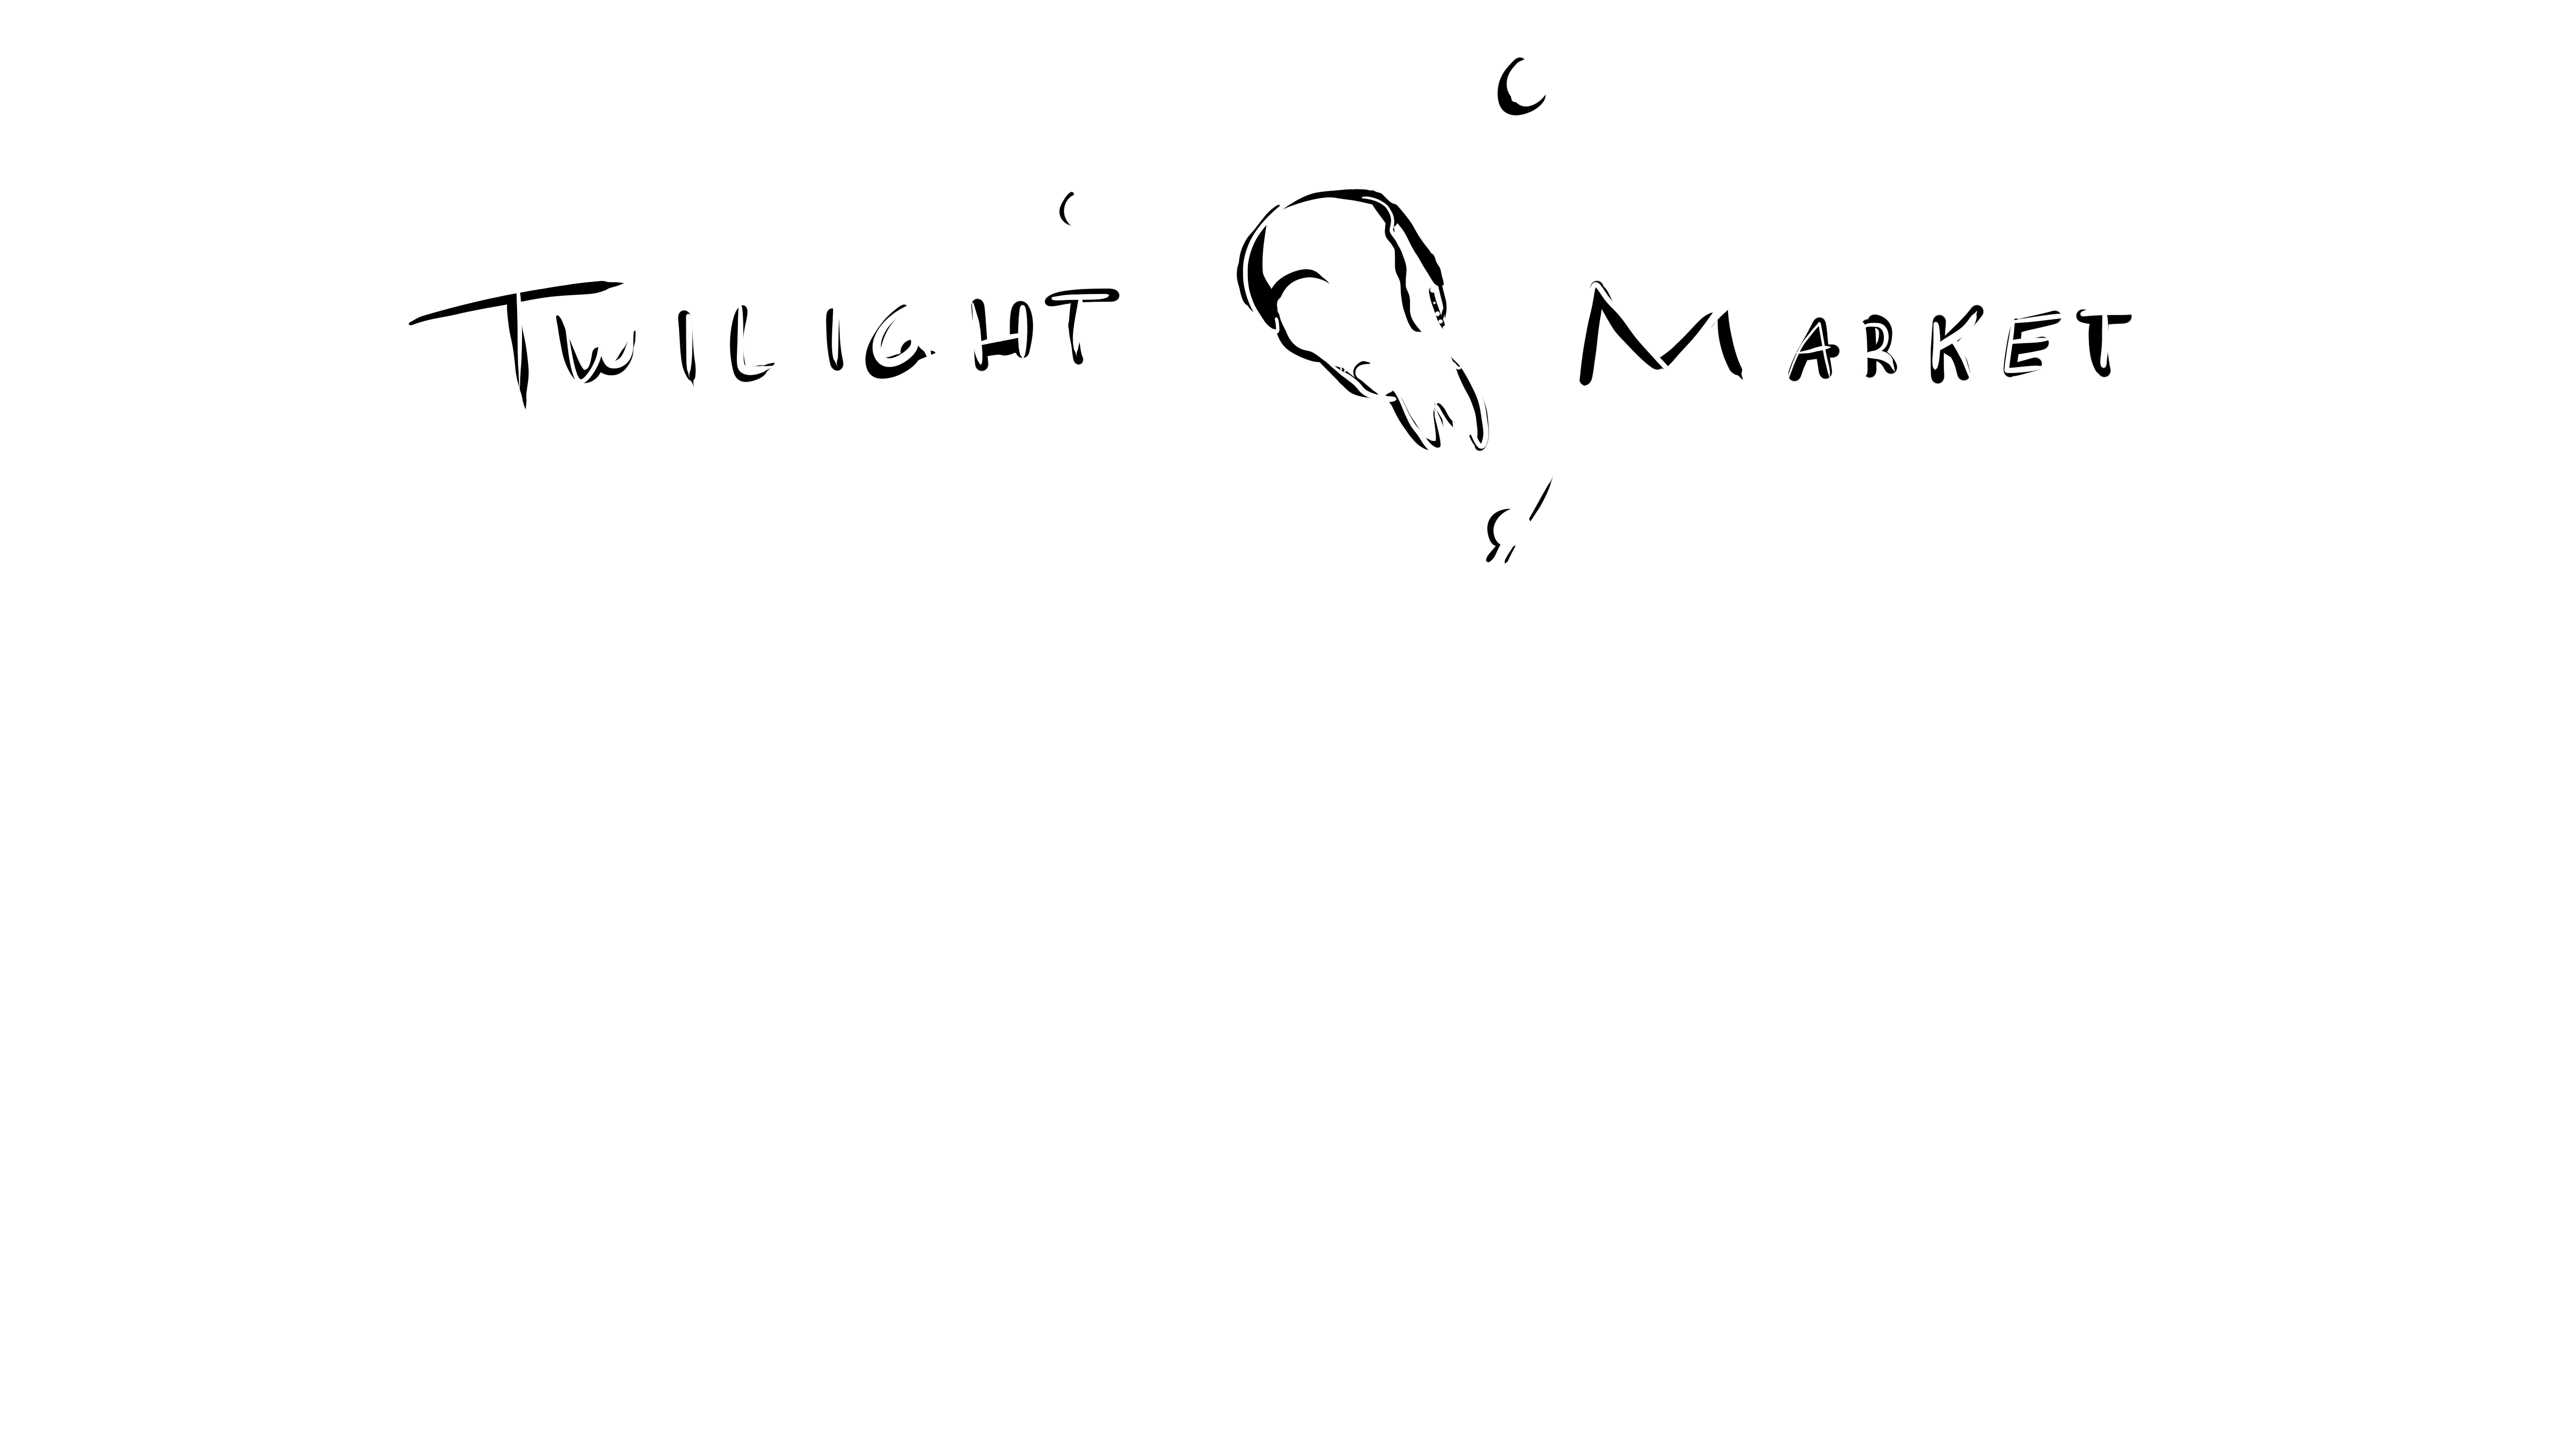 TWILIGHT MARKET